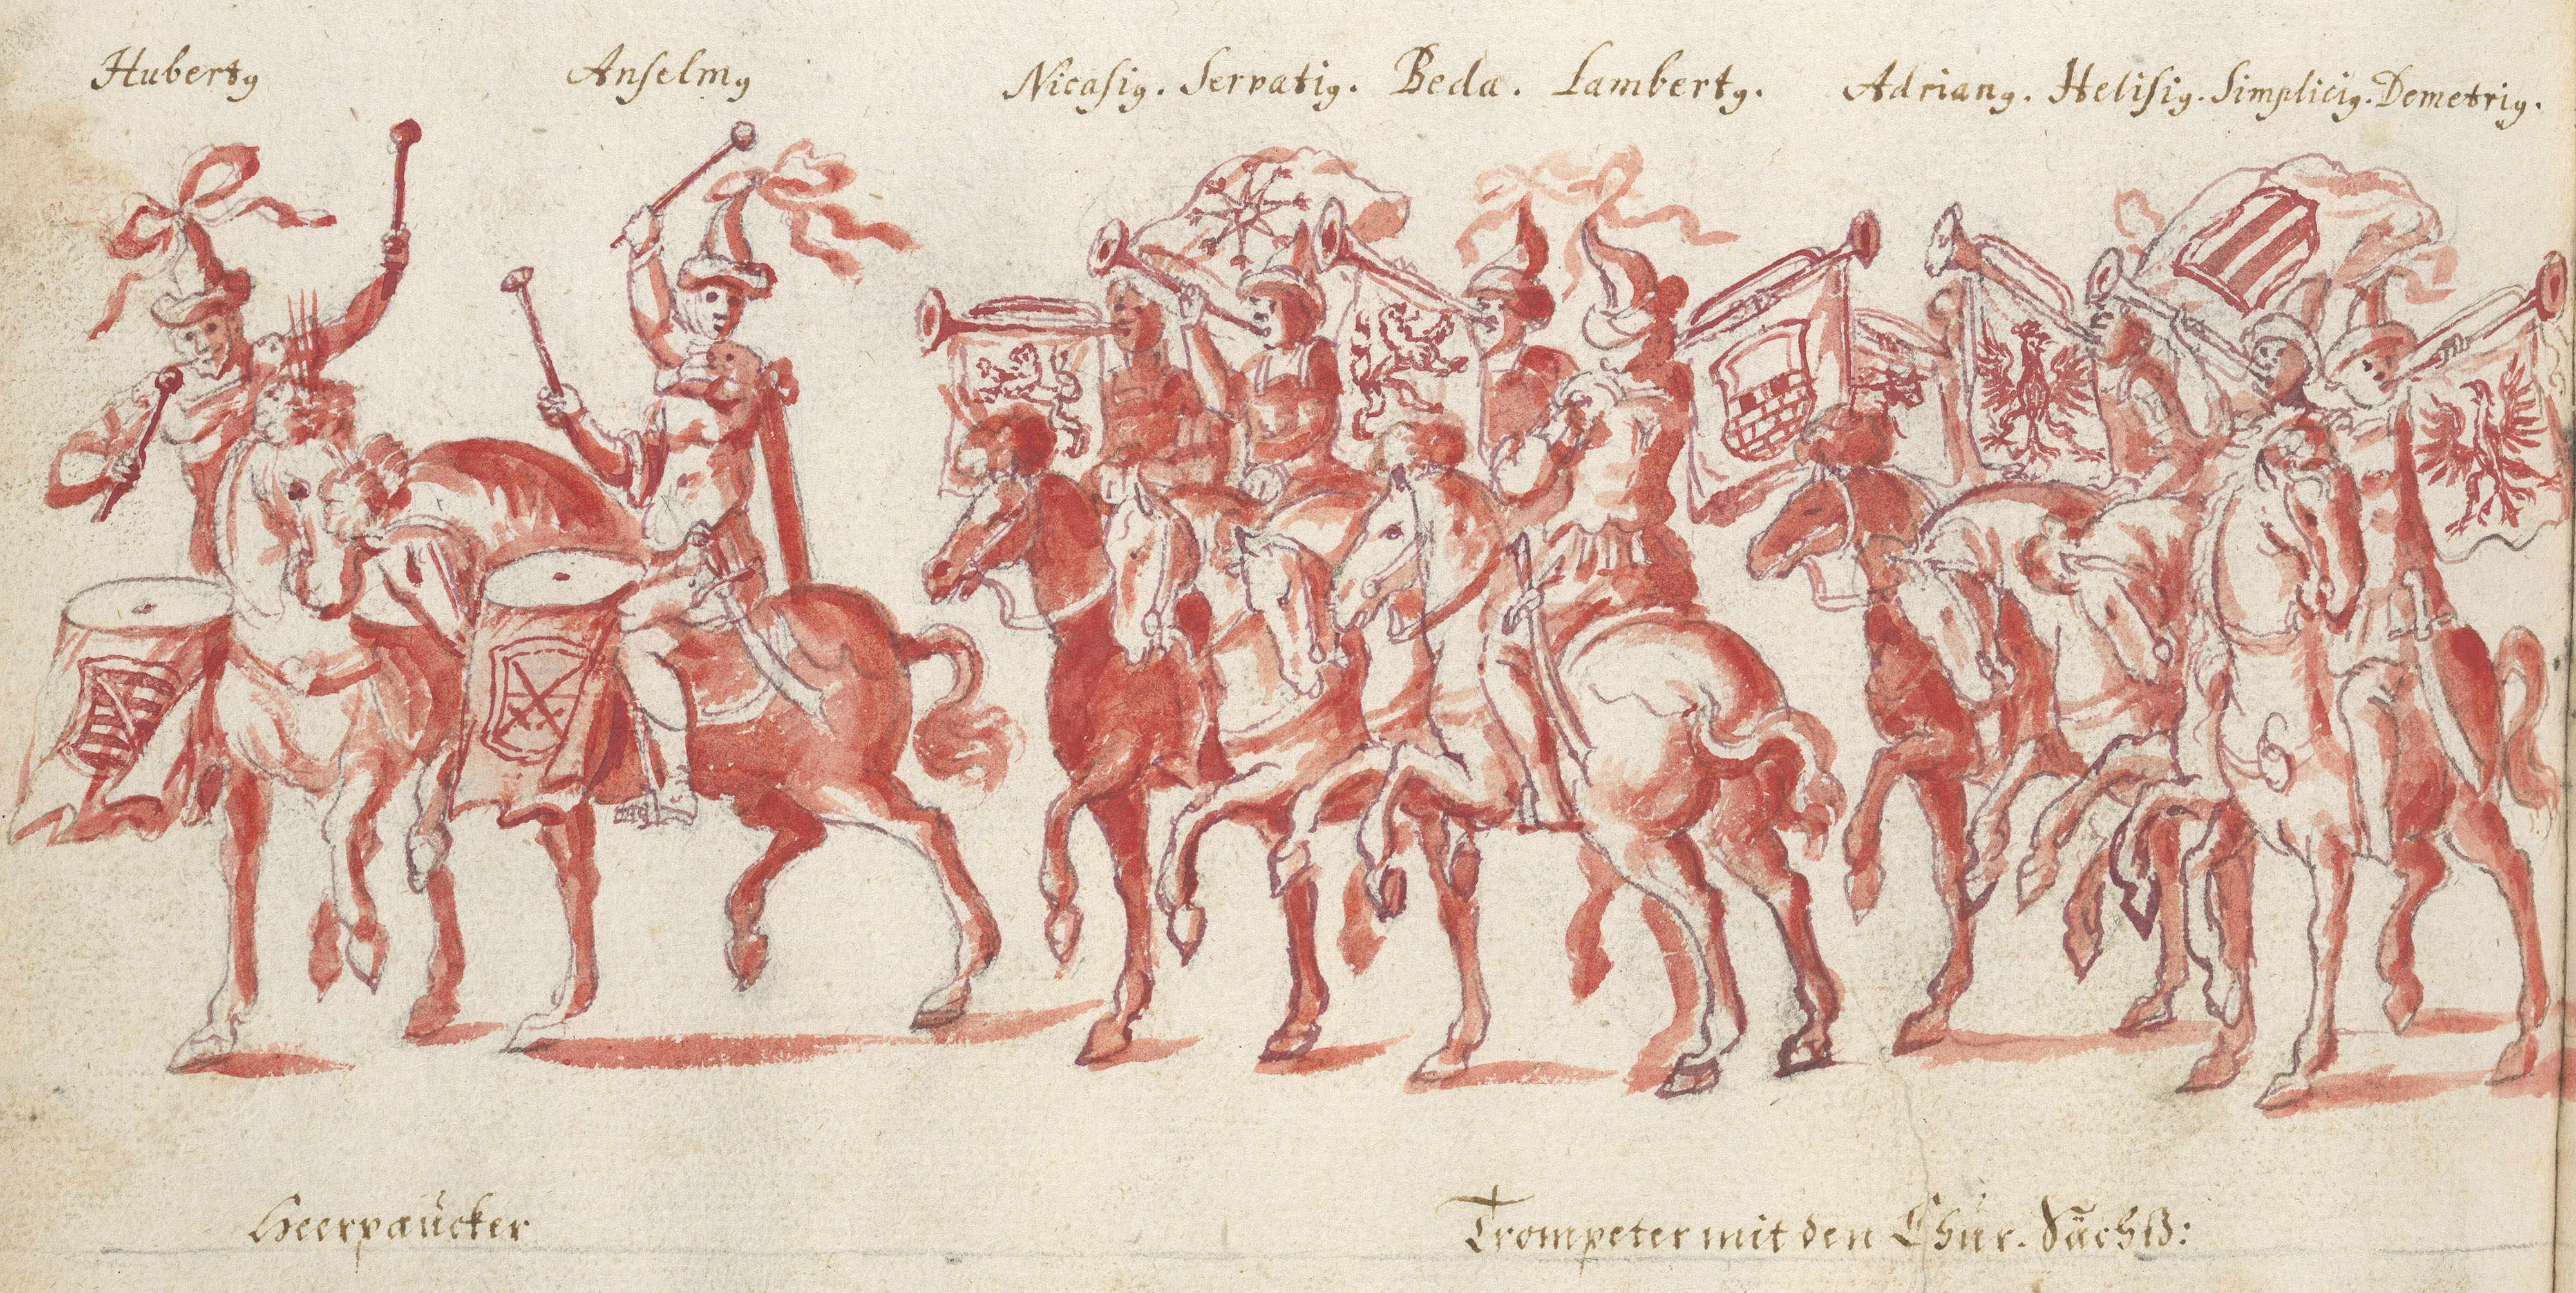 Hubertꝰ Anselmꝰ Nicasiꝰ. Servatiꝰ. Beda. Lambertꝰ. Adrianꝰ. Helisiꝰ. Simpliciꝰ. Demetriꝰ.
Heerpaŭcker Trompeter mit den Chŭr. Sächß: